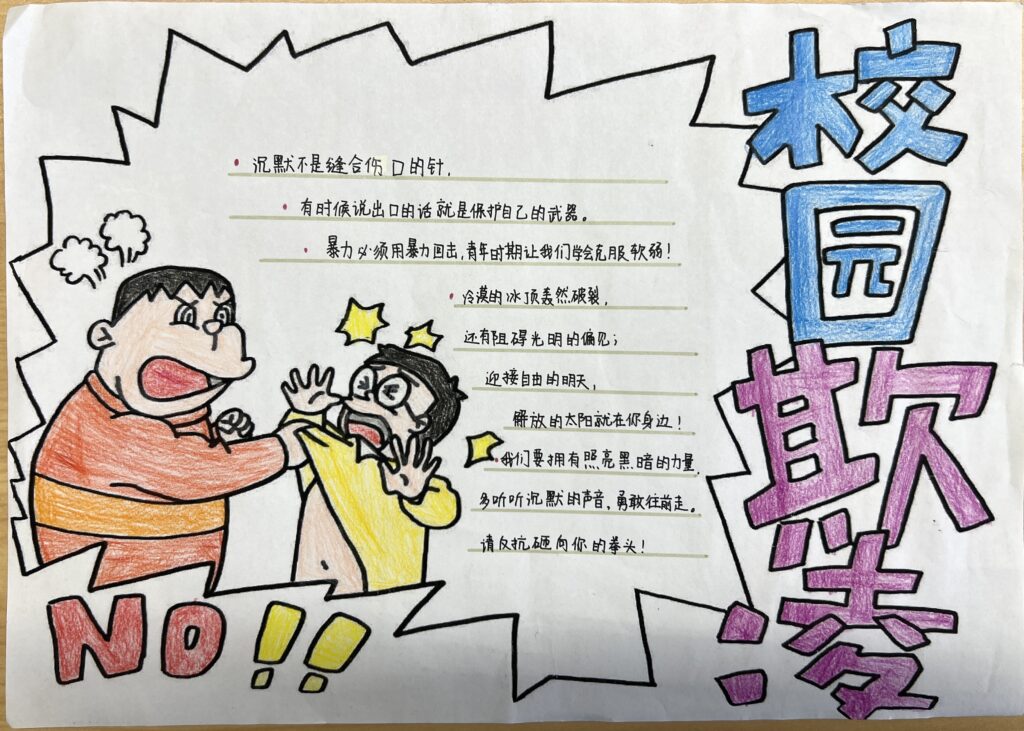 校园欺凌
沉默不是缝合伤口的针,
有时候说出口的话就是保护自己的武器。
暴力必须用暴力回击,青年时期让我们学会克服软弱!
冷漠的冰顶轰然破裂,
还有阻碍光明的偏见;
迎接自由的明天,
解放的太阳就在你身边!
我们要拥有照亮黑暗的力量,
多听听沉默的声音,勇敢往前走。
请反抗砸向你的拳头!
NO!!